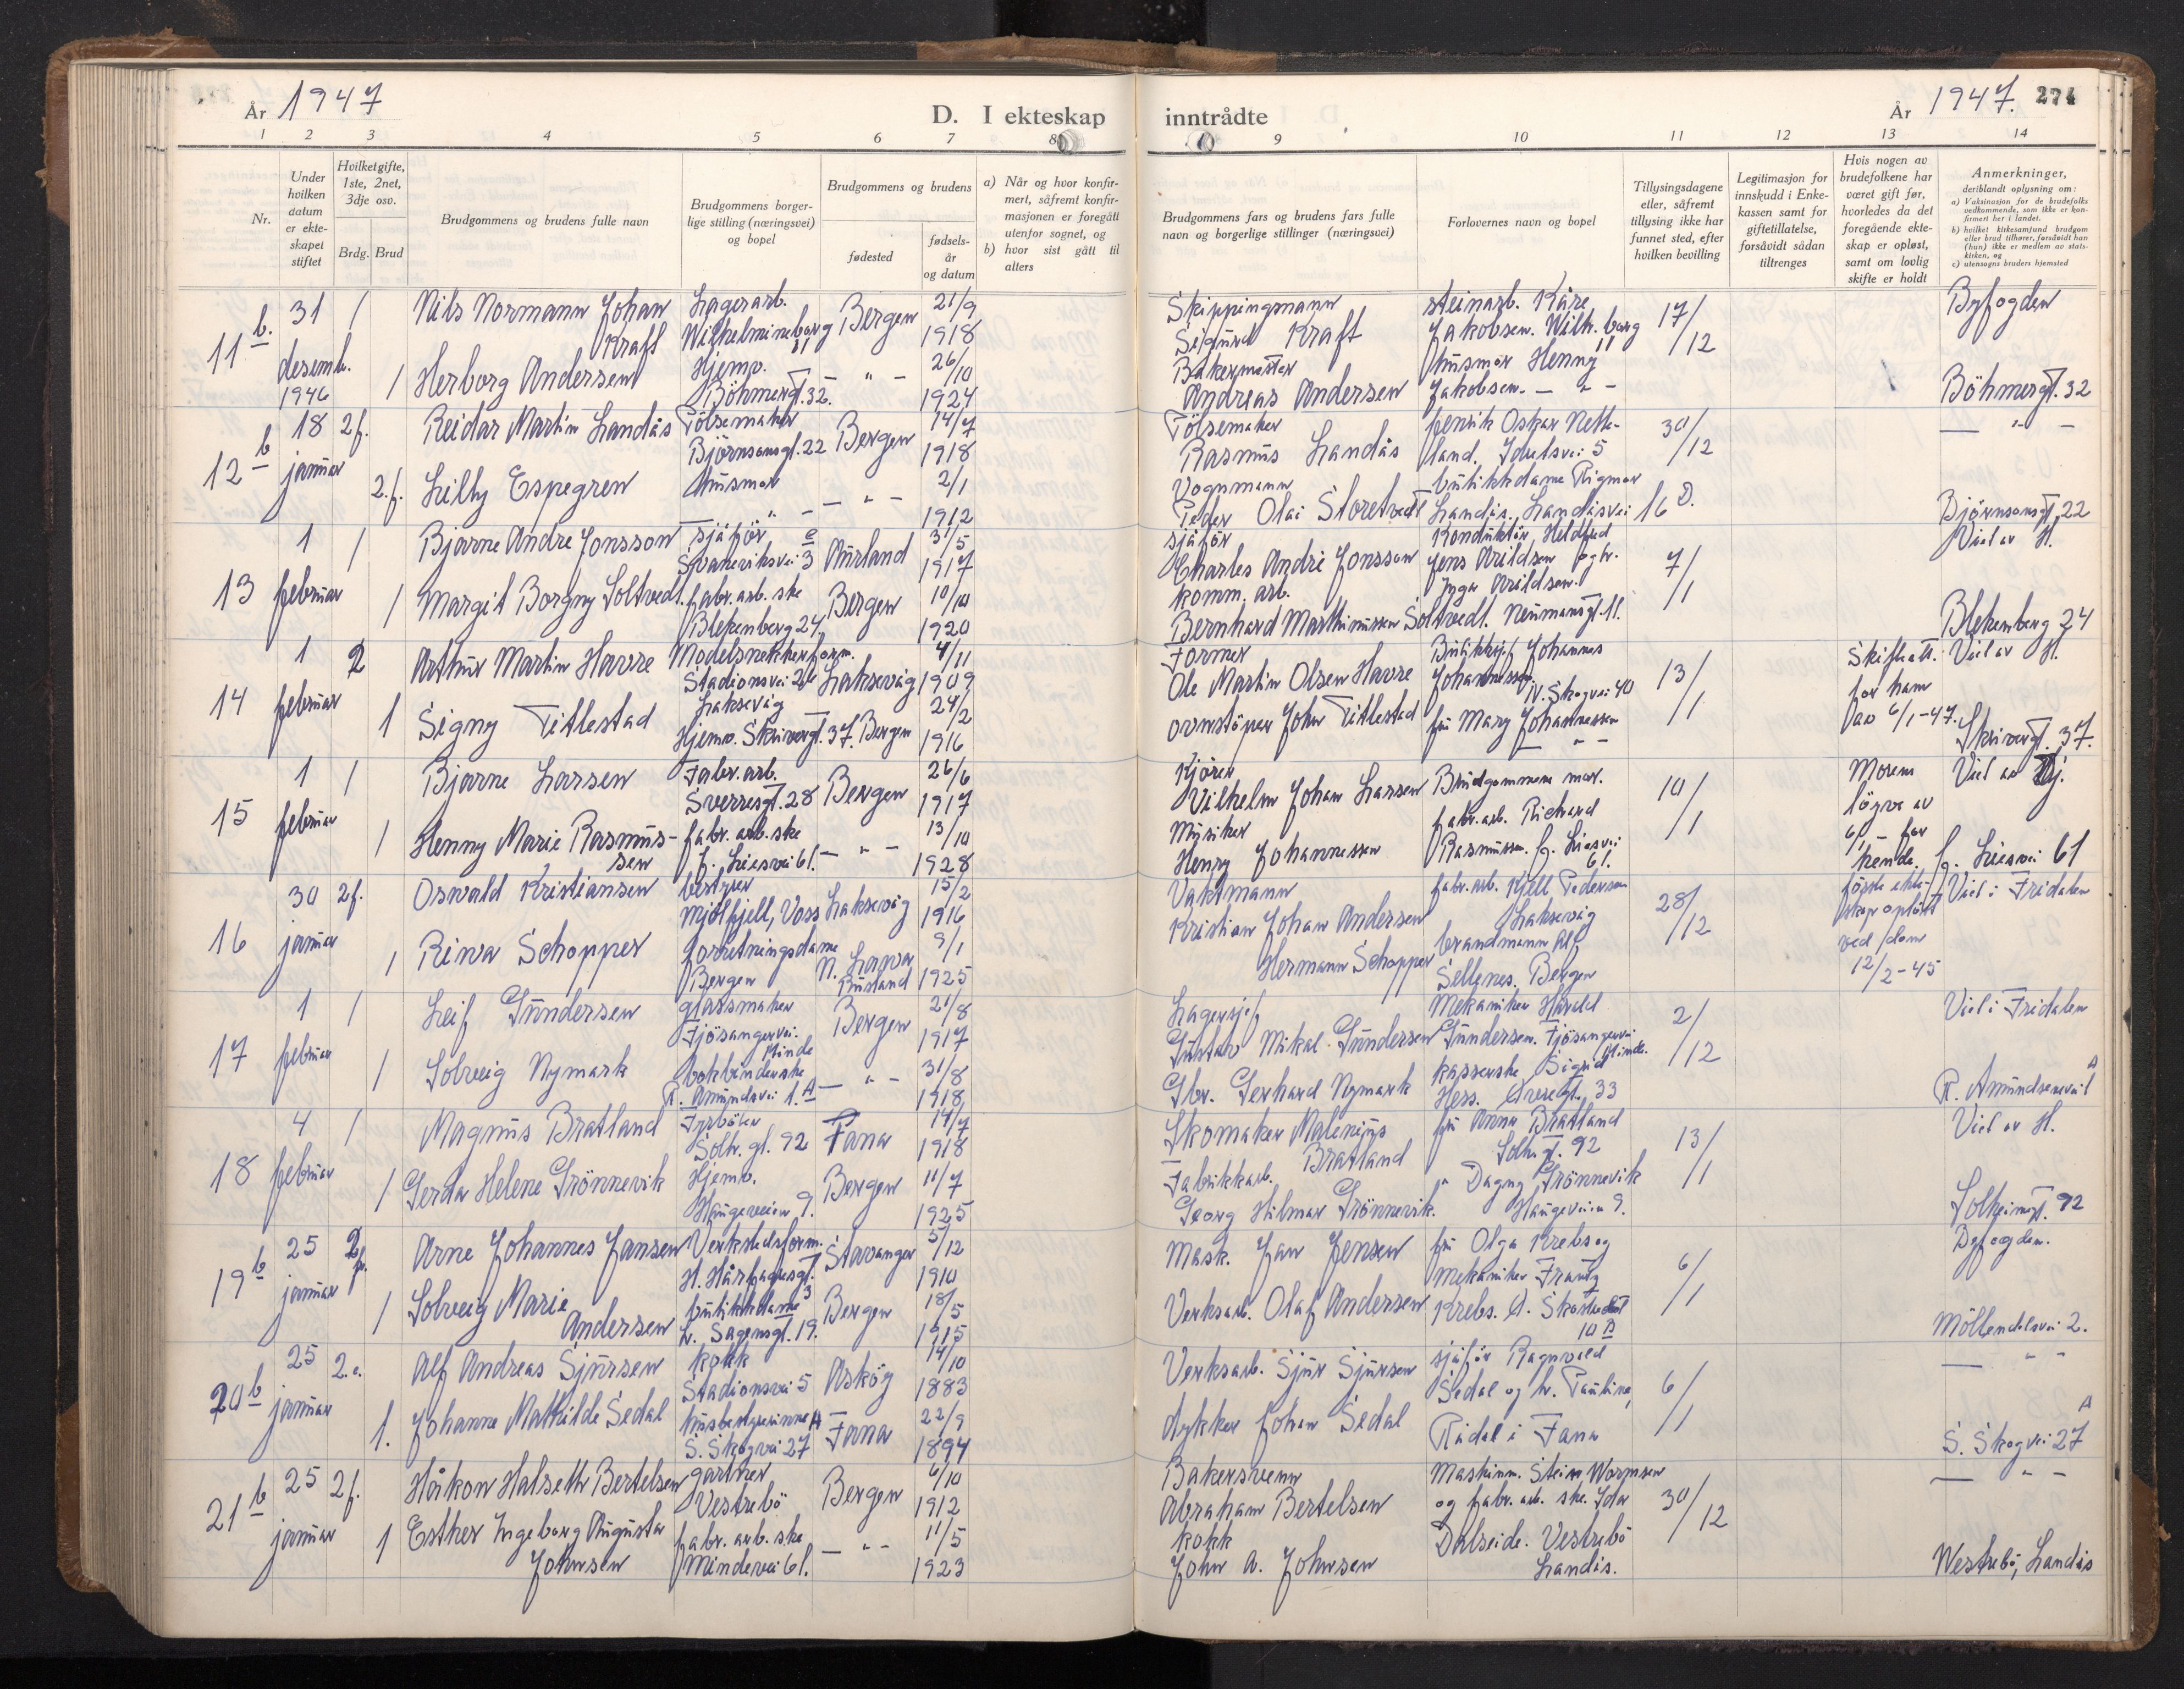 År 1947
D. I ekteskap inntrådte
År 1947. 274
1 2 3 4 5 6 7 8 9 10 11 12 13 14
Nr.
Under hvilken datum er ekteskapet stiftet
Hvilket gifte, 1ste, 2net, 3dje osv.
Brdg. Brud
Brudgommens og brudens fulle navn
Brudgommens borgerlige stilling (næringsvei) og bopel
Brudgommens og brudens
fødested
fødselsår og datum
a) Når og hvor konfirmert, såfremt konfirmasjonen er foregått utenfor sognet, og
b) hvor sist gått til alters
Brudgommens fars og brudens fars fulle navn og borgerlige stillinger (næringsvei)
Forlovernes navn og bopel
Tillysingsdagene eller, såfremt tillysing ikke har funnet sted, efter hvilken bevilling
Legitimasjon for innskudd i Enkekassen samt for giftetillatelse, forsåvidt sådan tiltrenges
Hvis nogen av brudefolkene har været gift før, hvorledes da det foregående ekteskap er opløst, samt om lovlig skifte er holdt
Anmerkninger,
deriblandt oplysning om:
a) Vaksinasjon for de brudefolks vedkommende, som ikke er konfirmert her i landet.
b) hvilket kirkesamfund brudgom eller brud tilhører, forsåvidt han (hun) ikke er medlem av statskirken, og
c) utensogns bruders hjemsted
11 b. 31 desemb. 1946 1 Nils Normann Johan Kraft Lagerarb. Wilhelmineborg 11 Bergen 21/9 1918 Skippingsmann Sigurd Kraft steinarb. Kåre Jakobsen. Wilh.borg 11 17/12 Byfogden
1 Herborg Andersen Hjemv. Böhmergt. 32. — " — 26/10 1924 Bakermester Andreas Andersen husmor Henny Jakobsen. — " — Böhmergt. 32
12 b 18 januar 2f. Reidar Martin Landås Pölsemaker Björnsonsgt. 22 Bergen 14/7 1918 Pölsemaker Rasmus Landås Henrik Oskar Nettland. Idrettsvei 5 30/12 — " —
2.f. Lilly Espegren husmor — " — — " — 2/1 1912 Vognmann Peder Olai Storetvedt butikkdame Rigmor Landås. Landåsvei 16 D. Björnsonsgt. 22
13 1 februar 1 Bjarne Andre Jonsson sjåför Svaneviksvei 3 e Aurland 31/5 1917 sjåför Charles Andre Jonsson Konduktör, Jens Arildsen og hr. 7/1 Viet av H.
1 Margit Borgny Soltvedt. fabr.arb.ske Blekenberg 24. Bergen 10/10 1920 komm. arb. Bernhard Marthinussen Soltvedt. Inga Arildsen. Neumansgt. 11. Blekenberg 24
14 1 februar 2 Arthur Martin Havre Modelsnekkerform. Stadionsvei 24 Laksevåg 4/11 1909 Former Ole Martin Olsen Havre Butikksjef Johannes Johannessen N. Skogvei 40 13/1 Skifteatt. for ham av 6/1-47. Viet av H.
1 Signy Titlestad Laksevåg Hjemv. Skivergt. 37. Bergen 24/2 1916 ovnstöper John Titlestad fru Mary Johannessen — " — Skivergt. 37.
15 1 februar 1 Bjarne Larsen Fabr.arb. Sverresgt. 28 Bergen 26/6 1917 Kjörer Vilhelm Johan Larsen Brudgommens mor. 10/1 Morens löyve av 6/1 - for hende. Viet av Hj.
1 Henny Marie Rasmussen fabr.arb.ske J. Liesvei 61. — " — 13/10 1928 Musiker Henry Johannessen fabr.arb. Richard Rasmussen. J. Liesvei 61. J. Liesvei 61
16 30 januar 2f. Oswald Kristiansen bestyrer Mjölfjell, Voss Laksevåg 15/2 1916 Vaktmann Kristian Johan Andersen fabr.arb. Kjell Pedersen Laksevåg 28/12 förste ekteskap oplöst ved dom 12/2-45 Viet i Fridalen
1 Riwa Schopper forretningsdame Bergen N. Russland 9/1 1925 Hermann Schopper brandmann Alf Sellenes. Bergen
17 1 februar 1 Leif Gundersen glassmaker Fjösangervei. Minde Bergen 21/8 1917 Lagersjef Gustav Mikal Gundersen Mekaniker Harald Gundersen. Fjösangervei Minde. 2/12 Viet i Fridalen
1 Solveig Nymark bokbinderske R. Amundsvei 1. A — " — 31/8 1918 Gbr. Gerhard Nymark kasserske Sigrid Hess. 33 R. Amundsensvei 1 A
18 4 februar 1 Magnus Bratland Fyrböter Solh. gt. 92 Fana 14/7 1918 Skomaker Malenius Bratland fru Anna Bratland Solh.gt. 92 13/1 Viet av H.
1 Gerda Helene Grönnevik Hjemv. Haugeveien 9. Bergen 11/7 1925 Fabrikkarb. Georg Hilmar Grönnevik. " Dagny Grönnevik Haugeveien 9. Solheimsgt. 92
19 b 25 januar 2 f. Arne Johannes Jansen Verkstedsform. H. Hårfagresgt. 3 Stavanger 5/12 1910 Mask. Jan Jensen fru Olga Krebs og mekaniker Frantz 6/1 Byfogden.
1 Solveig Marie Andersen butikkdame L. Sagensgt. 19. Bergen 18/5 1915 Verksarb. Olaf Andersen Krebs. 10 B Möllendalsvei 2.
20 b 25 januar 2.e. Alf Andreas Sjursen kokk Stadionsvei 5 Askög 14/10 1883 Verksarb. Sjur Sjursen sjåför Ragnvald Sedal og hr. Pauline, 6/1 — " —
1. Johanne Mathilde Sedal husbestyrerinne S. Skogvei 27 A Fana 22/9 1894 dykker Johan Sedal Rådal i Fana S. Skogvei 27 A
21 b 25 januar 2f. Håkon Halseth Bertelsen gartner Vestrebö Bergen 6/10 1912 Bakersvenn Abraham Bertelsen Maskinm. Stein Wormsen og fabr.arb.ske. Ida 30/12 — " —
1 Esther Ingeborg Augusta Johnsen fabr.arb.ske Mindevei 61. — " — 11/5 1923 kokk John A. Johnsen Dalseide. Vestrebö Landås. Westrebö, Landås